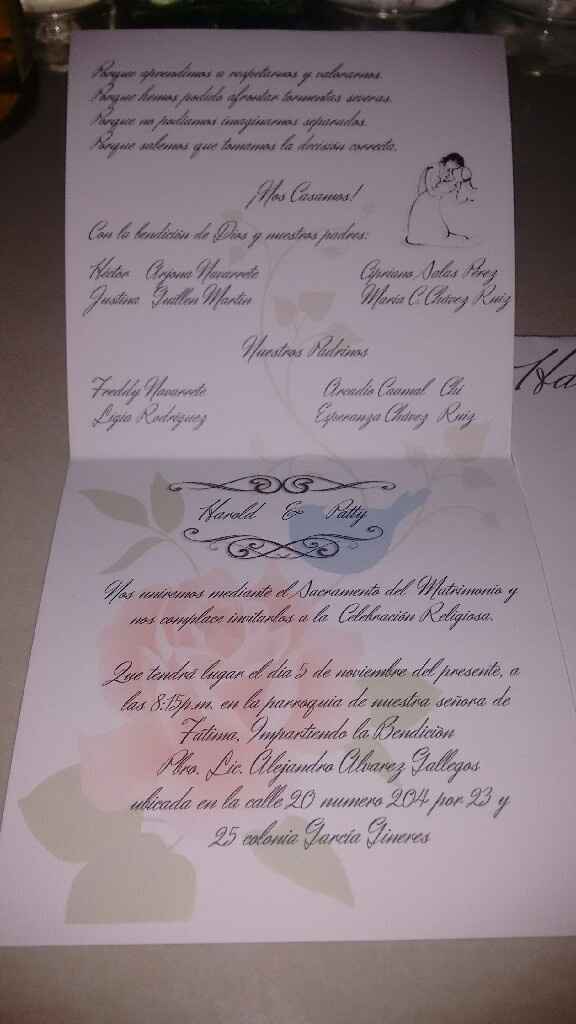 Porque aprendimos a respetarnos y valorarnos.
Porque hemos podido afrontar tormentas severas.
Porque no podiamos imaginarnos separados.
Porque sabemos que tomamos la decisión correcta.
¡Nos Casamos!
Con la bendición de Dios y nuestros padres:
Hector Arjona Navarrete Cipriano Salas Pérez
Justina Guillen Martin María C. Chávez Ruiz
Nuestros Padrinos
Freddy Navarrete Arcadio Caamal Chi
Ligia Rodríguez Esperanza Chávez Ruiz
Harold & Patty
Nos uniremos mediante el Sacramento del Matrimonio y
nos complace invitarlos a la Celebración Religiosa.
Que tendrá lugar el dia 5 de noviembre del presente, a
las 8:15p.m. en la parroquia de nuestra señora de
Fatima, Impartiendo la Bendición
Pbro. Lic. Alejandro Alvarez Gallegos
ubicada en la calle 20 numero 204 por 23 y
25 colonia García Gineres
Ha